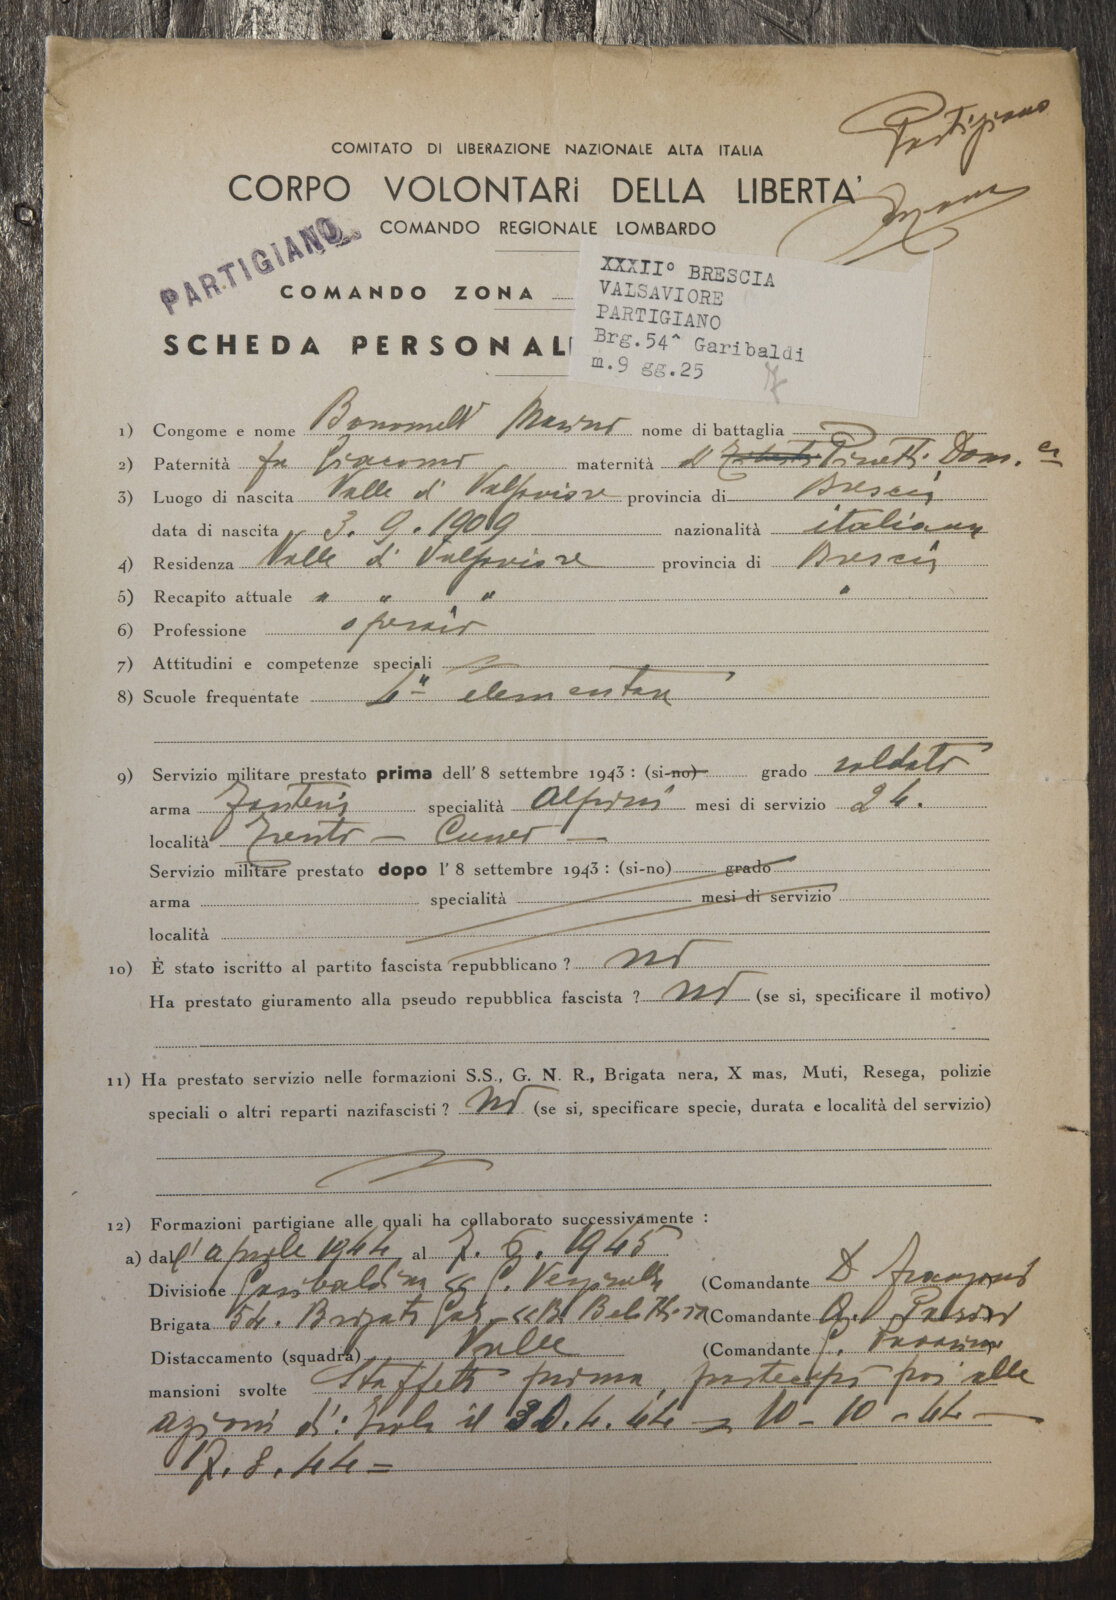 Partigiano
COMITATO DI LIBERAZIONE NAZIONALE ALTA ITALIA
CORPO VOLONTARi DELLA LIBERTA'
COMANDO REGIONALE LOMBARDO
PARTIGIANO
COMANDO ZONA
XXXII° BRESCIA
VALSAVIORE
PARTIGIANO
Brg.54^ Garibaldi
m.9 gg.25
SCHEDA PERSONAL
1) Congome e nome Bonomelli Marino nome di battaglia
2) Paternità fu Giacomo maternità di Pinetti Dom.ca
3) Luogo di nascita Valle di Valsaviore provincia di Brescia
data di nascita 3. 9. 1909 nazionalità italiana
4) Residenza Valle di Valsaviore provincia di Brescia
5) Recapito attuale " " " "
6) Professione operaio
7) Attitudini e competenze speciali
8) Scuole frequentate 4ª elementare
9) Servizio militare prestato prima dell' 8 settembre 1943 : (si-no) grado soldato
arma Fanteria specialità Alpini mesi di servizio 24.
località Trento - Cuneo -
Servizio militare prestato dopo l' 8 settembre 1943 : (si-no) grado
arma specialità mesi di servizio
località
10) È stato iscritto al partito fascista repubblicano ? no
Ha prestato giuramento alla pseudo repubblica fascista ? no (se si, specificare il motivo)
11) Ha prestato servizio nelle formazioni S.S., G. N. R., Brigata nera, X mas, Muti, Resega, polizie
speciali o altri reparti nazifascisti ? no (se si, specificare specie, durata e località del servizio)
12) Formazioni partigiane alle quali ha collaborato successivamente :
a) dal l' aprile 1944 al 1945
Divisione Garibaldina (Comandante
Brigata 54. Brigata Gar. (Comandante
Distaccamento (squadra) Valle (Comandante
mansioni svolte Staffetta prima, partecipò poi alle
azioni di: Isola il 30.4.44 - 10-10-44 -
17.8.44 =